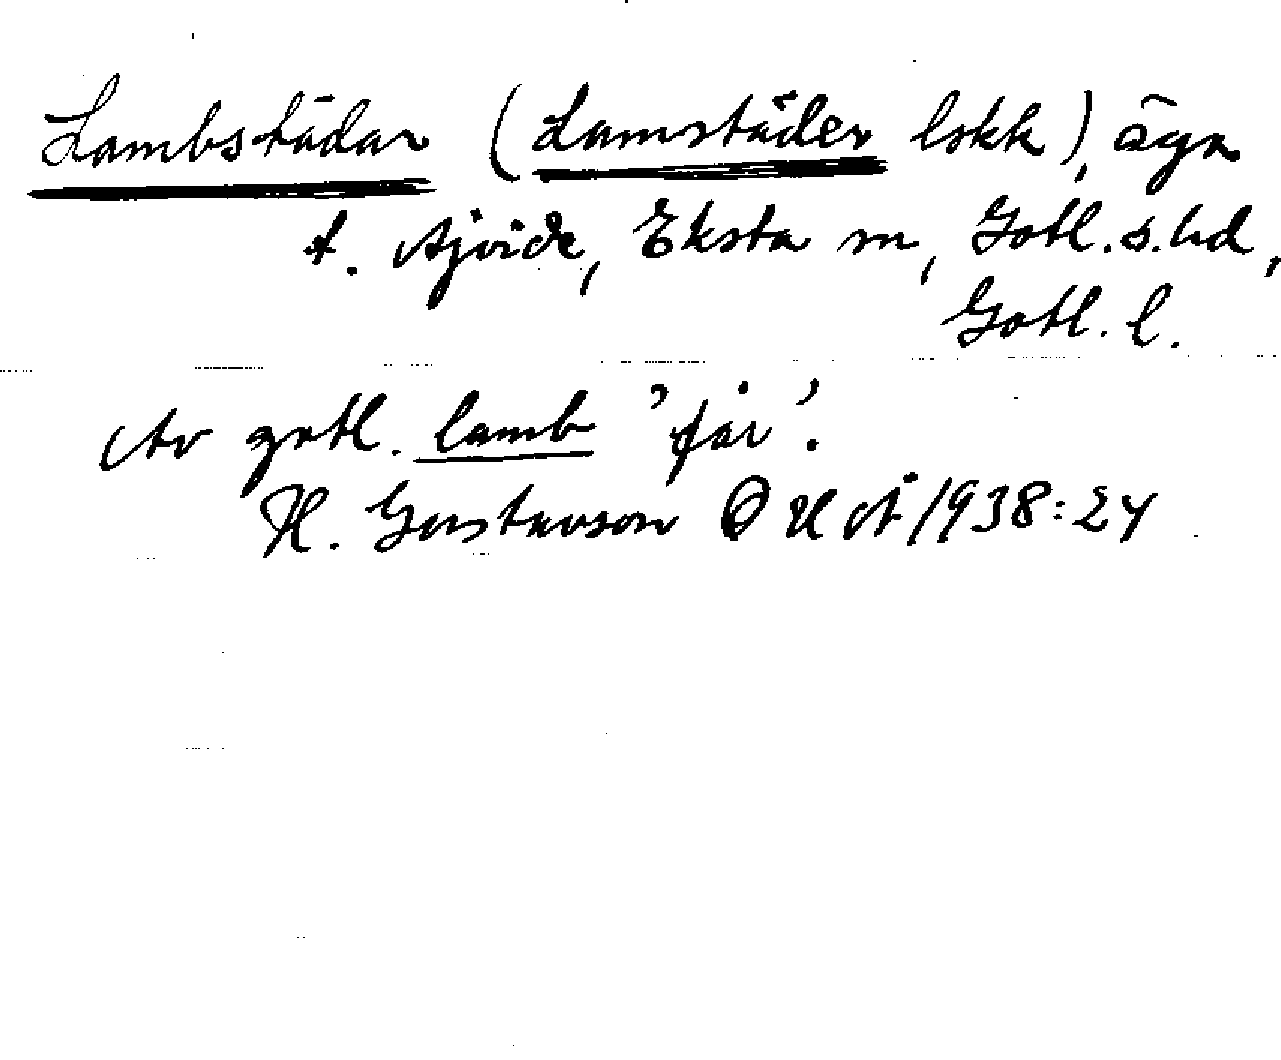 Lambstädar (Lamstäder lskk), ägn
t. Ajvide, Eksta sn, Gotl. s. hd,
Gotl. l.
Av gotl. lamb 'får'.
H. Gustavson OUÅ 1938:24